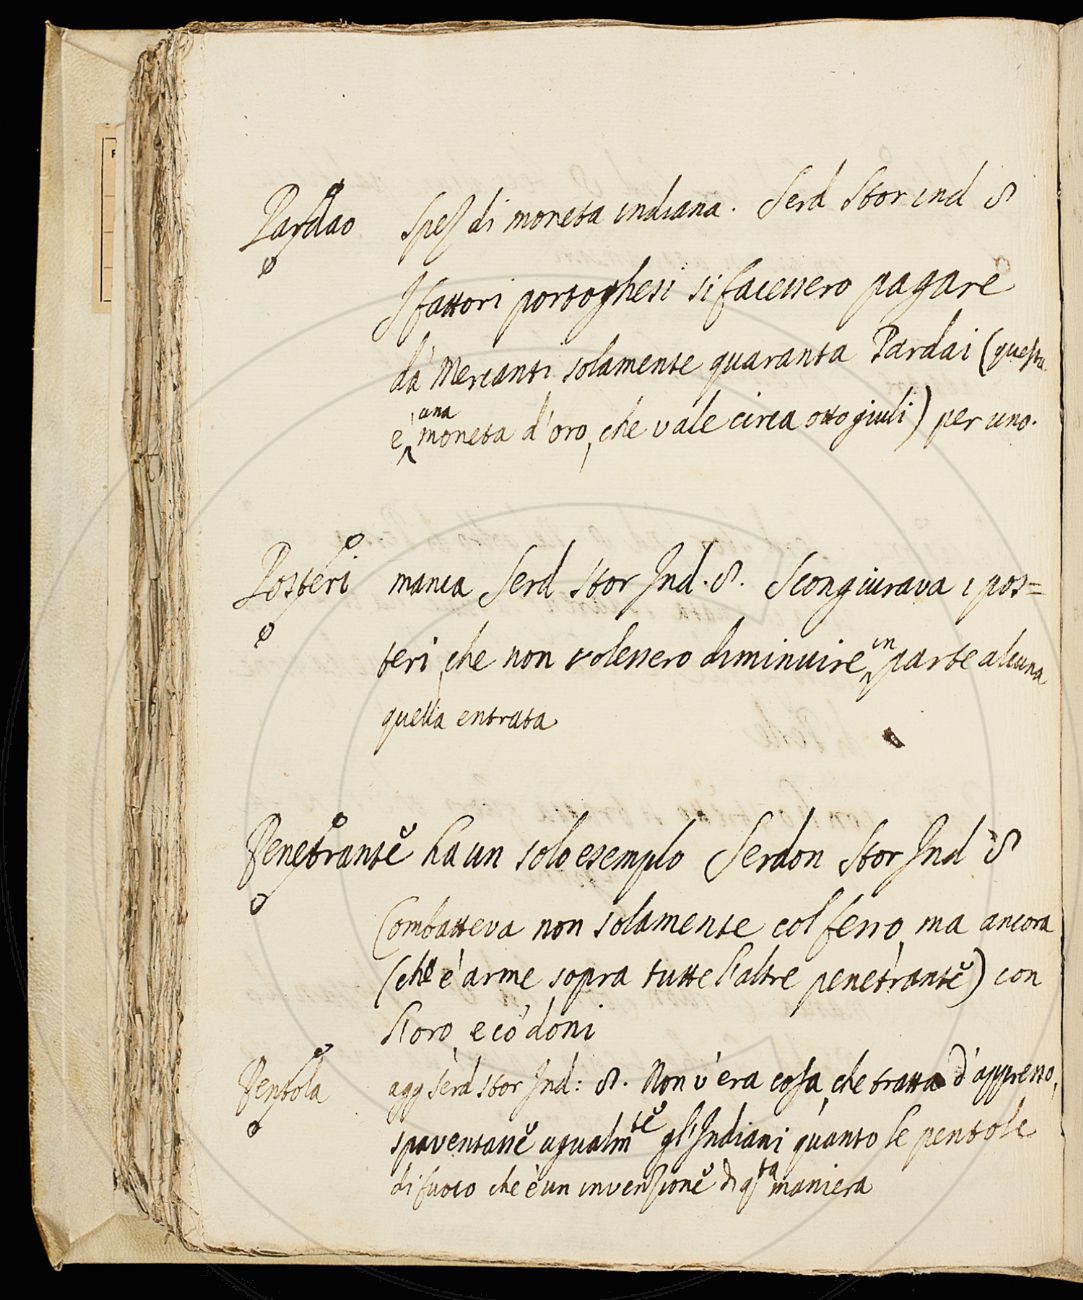 Pardao spez di moneta indiana. Serd Stor ind 8
I fattori portoghesi si facessero pagare
da' Mercanti solamente quaranta Pardai (questa
è una moneta d'oro, che vale circa otto giuli) per uno.
Posteri manca Serd Stor Ind. 8. Scongiurava i pos=
teri, che non volessero diminuire in parte alcuna
quella entrata
Penetrante ha un solo esemplo Serdon Stor Ind 8
Combatteva non solamente col ferro, ma ancora
(che è arme sopra tutte l'altre penetrante) con
l'oro, e co' doni
Pentola agg Serd Stor Ind: 8. Non v'era cosa, che tratta d'appresso,
spaventasse ugualmte gl'Indiani quanto le pentole
di fuoco che è un invenzione di qsta maniera